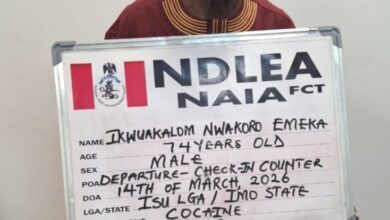 NDLEA
NAIA FCT
NAME IKWUAKALOM NWAKORO EMEKA
AGE 74 YEARS OLD
SEX MALE
POA DEPARTURE - CHECK-IN COUNTER
DOA 14TH OF MARCH, 2026
LGA/STATE ISU LGA / IMO STATE
COCAINE